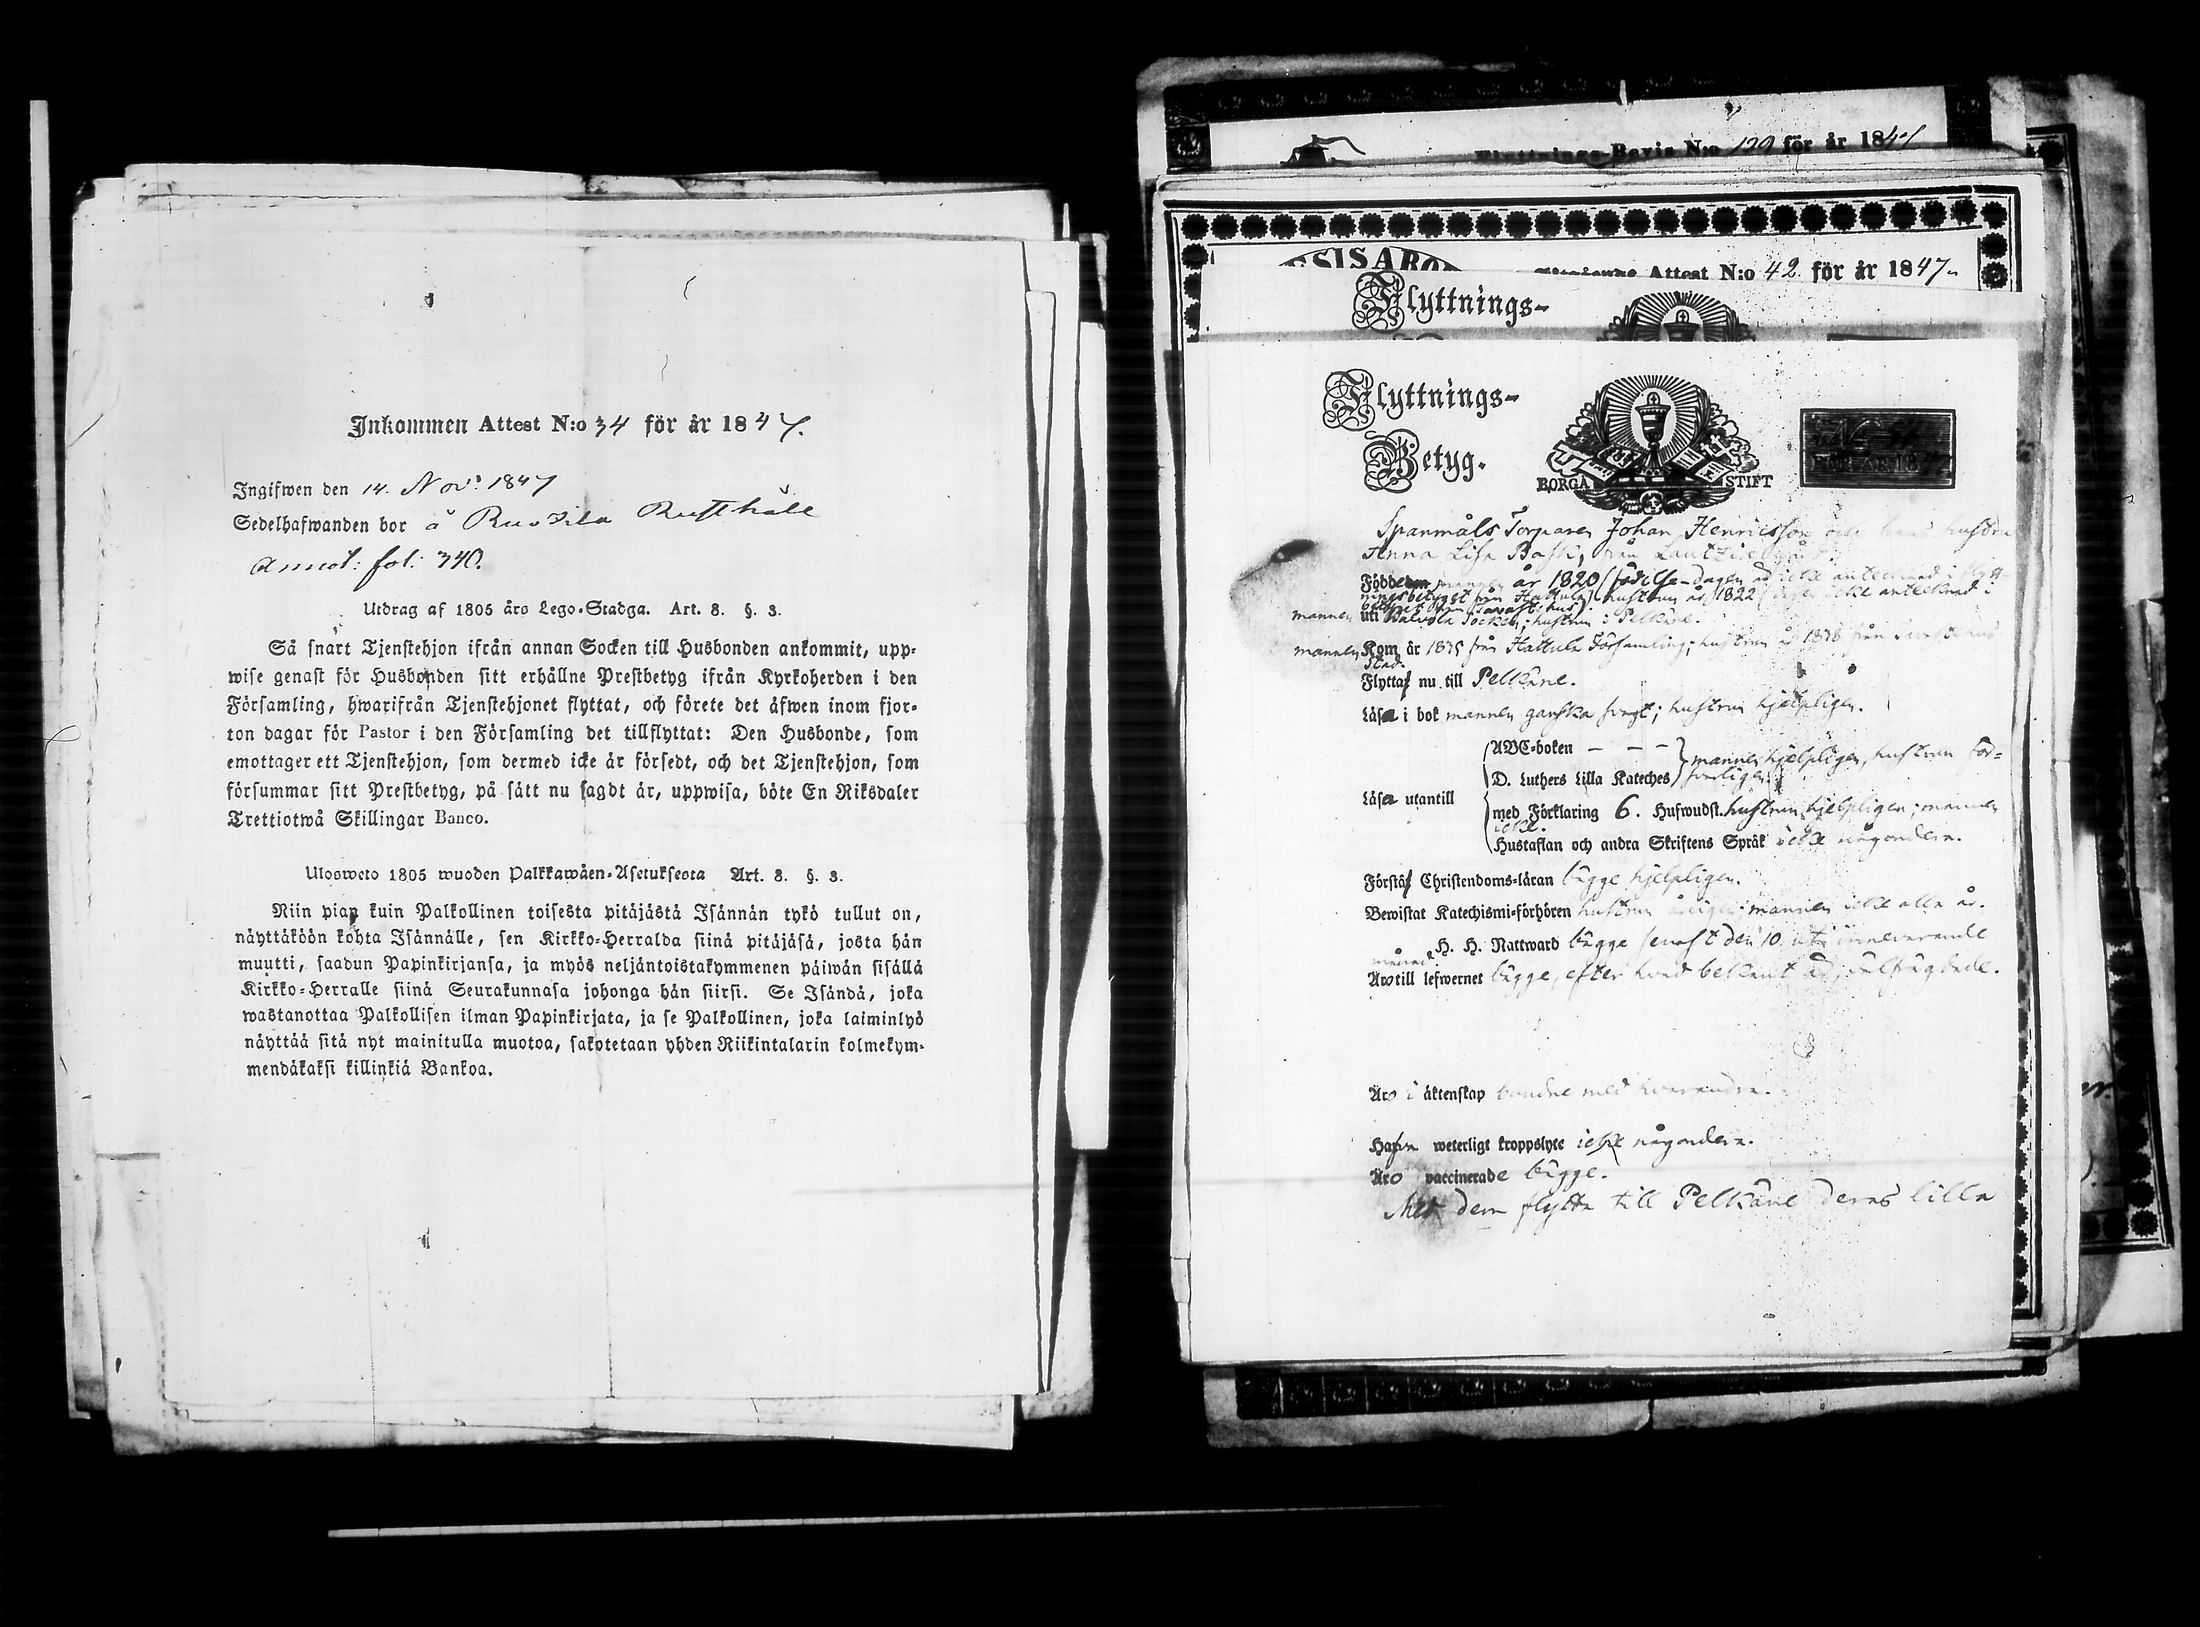 Inkommen Attest N:o 34 för år 1847.
Ingifwen den 14. Nov: 1847
Sedelhafwanden bor å Rusthåll
Annot: fol: 340.
Utdrag af 1805 års Lego-Stadga. Art. 8. §. 3.
Så snart Tjenstehjon ifrån annan Socken till Husbonden ankommit, upp-
wise genast för Husbonden sitt erhållne Prestbetyg ifrån Kyrkoherden i den
Församling, hwarifrån Tjenstehjonet flyttat, och förete det äfwen inom fjor-
ton dagar för Pastor i den Församling det tillflyttat: Den Husbonde, som
emottager ett Tjenstehjon, som dermed icke är försedt, och det Tjenstehjon, som
försummar sitt Prestbetyg, på sätt nu sagdt är, uppwisa, böte En Riksdaler
Trettiotwå Skillingar Banco.
Ulosweto 1805 wuoden Palkkawäen-Asetuksesta Art. 8. §. 3.
Niin pian kuin Palkollinen toisesta pitäjästä Isännän tykö tullut on,
näyttäköön kohta Isännälle, sen Kirkko-Herralda siinä pitäjäsä, josta hän
muutti, saadun Papinkirjansa, ja myös neljäntoistakymmenen päiwän sisällä
Kirkko-Herralle siinä Seurakunnasa johonga hän siirsi. Se Isändä, joka
wastanottaa Palkollisen ilman Papinkirjata, ja se Palkollinen, joka laiminlyö
näyttää sitä nyt mainitulla muotoa, sakotetaan yhden Riikintalarin kolmekym-
mendäkaksi killinkiä Bankoa.
Flyttnings-Bevis N:o 129 för år 1841
Attest N:o 42. för år 1847.
Flyttnings-
Flyttnings-
Betyg.
BORGÅ STIFT
FÖR ÅR 18
Spanmåls Torparen Johan Henricsson och hans hustru
Anna Lisa Bask, från
Födde mannen år 1820 (födelse-dagen är icke antecknad i flytt-
ningsbetyget från Hattula) hustrun år 1822 (dagen icke antecknad i
mannen uti Socken; hustrun i Pelkäne.
mannen Kom år 1835 från Hattula Församling; hustrun år 1838 från
Stad.
Flytta nu till Pelkäne.
Läsa i bok mannen ganska svagt; hustrun hjelpligen.
ABC-boken — — — mannen hjelpligen, hustrun för-
D. Luthers Lilla Kateches svarligen
Läsa utantill
med Förklaring 6. Hufwudst. hustrun hjelpligen; mannen
icke.
Hustaflan och andra Skriftens Språk icke någondera.
Förstå Christendoms-läran bägge hjelpligen.
Bewistat Katechismi-förhören hustrun årligen; mannen icke alla år.
H. H. Nattward bägge senast den 10 uti innevarande
månad.
Äro till lefwernet bägge, efter hvad bekant är, välfrägdade.
Äro i äktenskap bundne med hvarandra.
Hafva weterligt kroppslyte icke någondera.
Äro vaccinerade bägge.
Med dem flytta till Pelkäne deras lilla